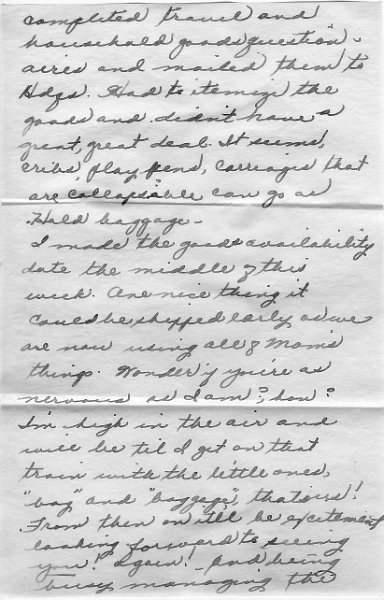 completed travel and
household goods question-
aires and mailed them to
Hdqs. Had to itemize the
goods and didn't have a
great, great deal. It seems,
cribs, play pens, carriages that
are collapsible can go as
Hold baggage -
I made the goods availability
date the middle of this
week. One nice thing it
could be shipped early as we
are now using all of Mom's
things. Wonder if you're as
nervous as I am?, hon?
I'm high in the air and
will be til I get on that
train with the little ones,
"bag" and "baggage", that is!
From then on it'll be excitement
looking forward to seeing
you! again! And being
busy managing the